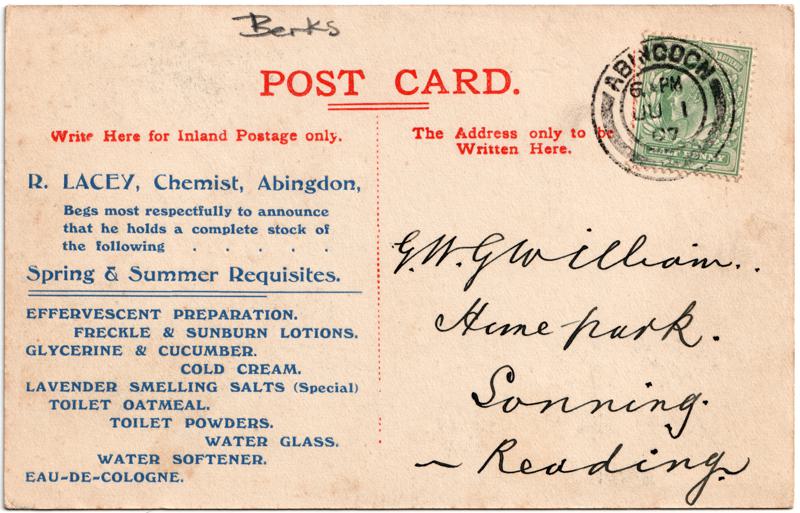 Berks
POST CARD.
Write Here for Inland Postage only.
The Address only to be
Written Here.
R. LACEY, Chemist, Abingdon,
Begs most respectfully to announce
that he holds a complete stock of
the following . . . . .
Spring & Summer Requisites.
EFFERVESCENT PREPARATION.
FRECKLE & SUNBURN LOTIONS.
GLYCERINE & CUCUMBER.
COLD CREAM.
LAVENDER SMELLING SALTS (Special)
TOILET OATMEAL.
TOILET POWDERS.
WATER GLASS.
WATER SOFTENER.
EAU-DE-COLOGNE.
ABINGDON
PM
JU 1
07
HALF PENNY
G. W. GWilliam..
Hime park.
Sonning.
~ Reading.